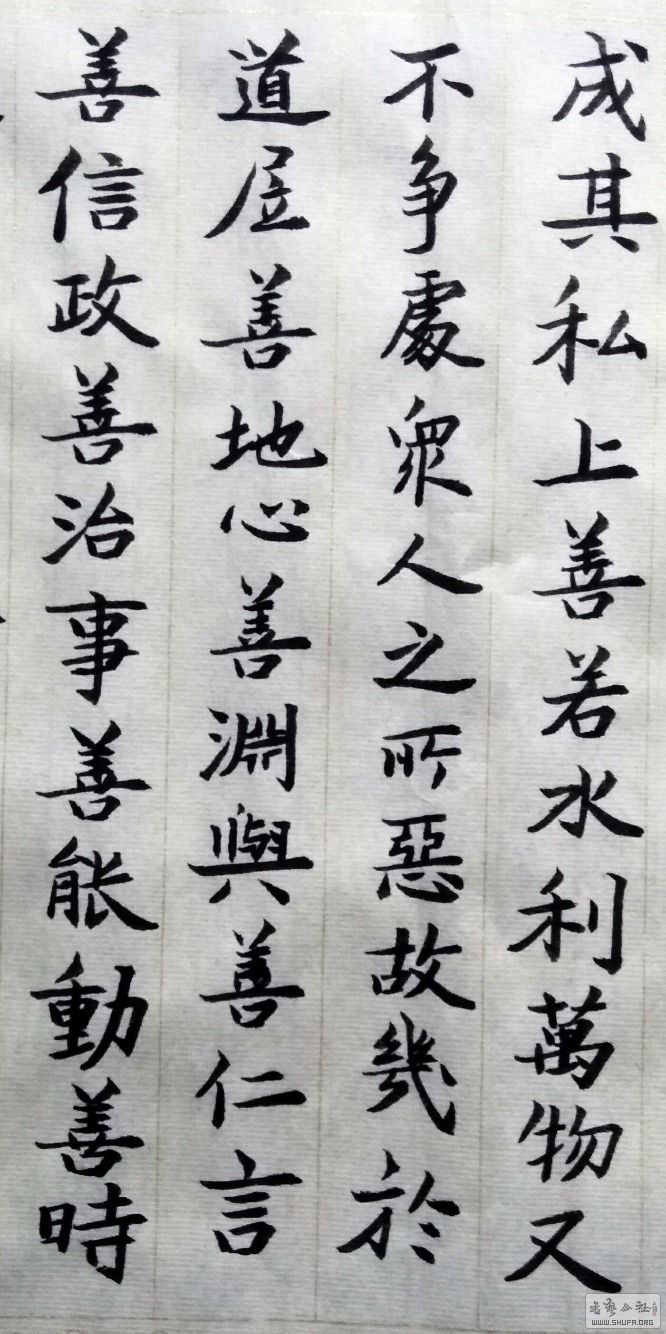 成其私上善若水利萬物又
不争處衆人之所惡故幾於
道居善地心善淵與善仁言
善信政善治事善能動善時
WWW.SHUFA.ORG